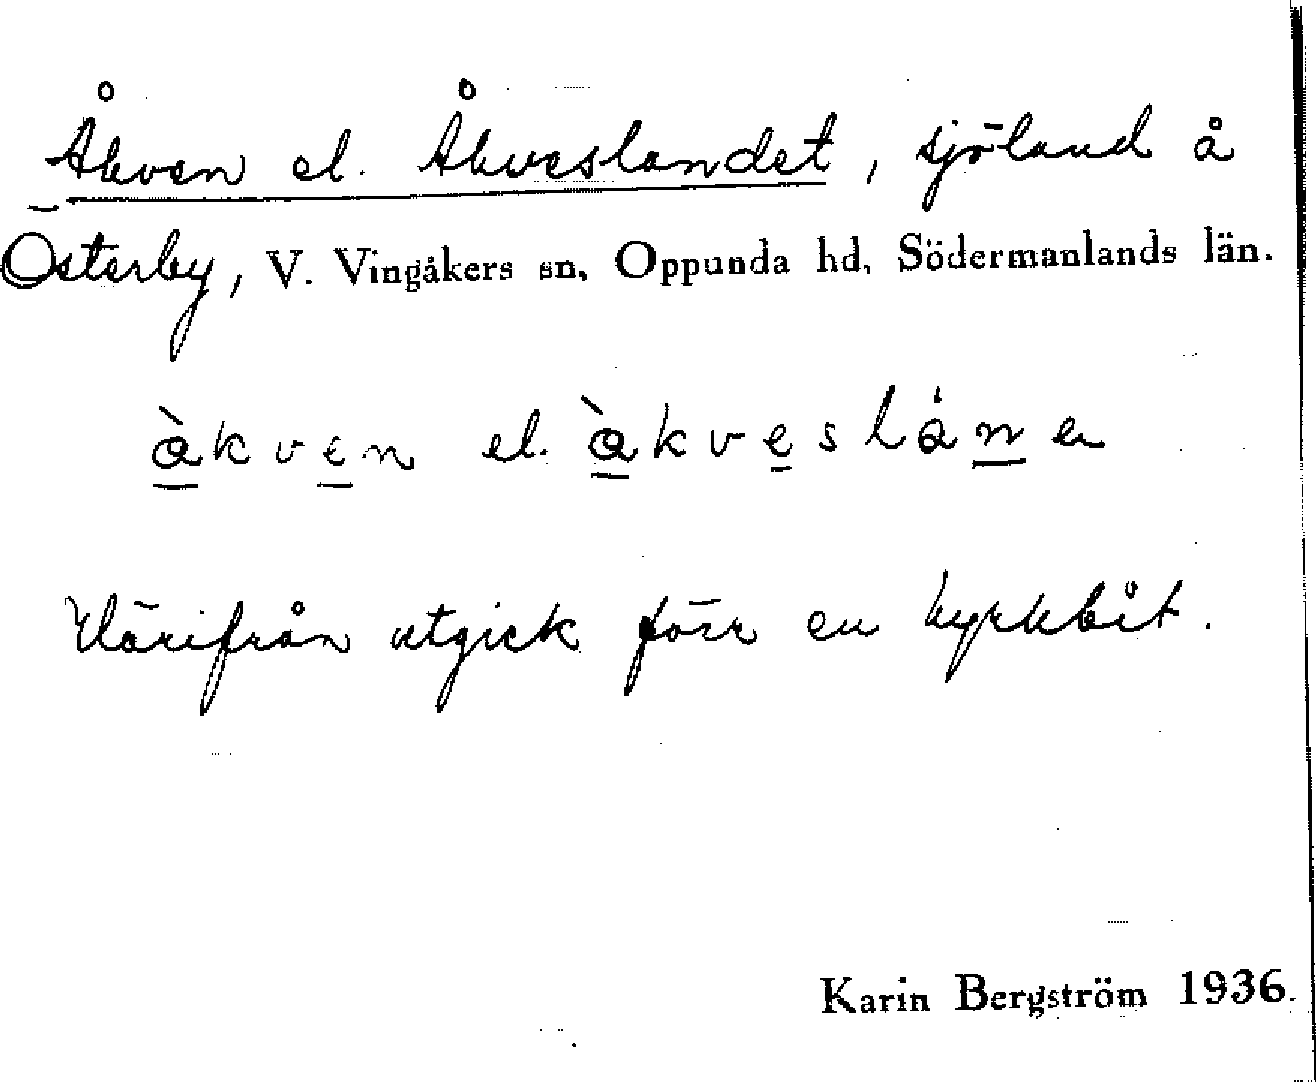 Åkven el. Åkveslandet, sjöland å
Österby, V. Vingåkers sn, Oppunda hd, Södermanlands län.
àkven el. àkveslán e
Härifrån utgick förr en kyrkbåt.
Karin Bergström 1936.